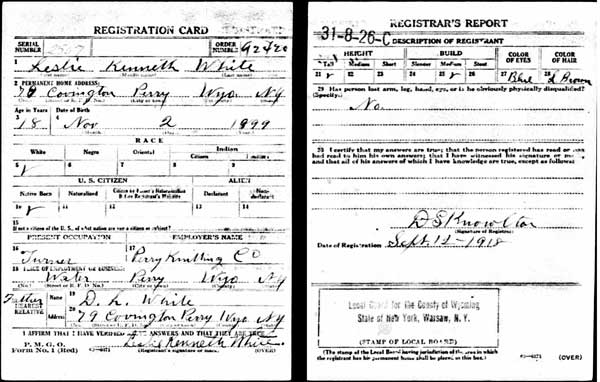 REGISTRATION CARD
SERIAL NUMBER
ORDER NUMBER
1 Leslie Kenneth White
(First name) (Middle name) (Last name)
2 PERMANENT HOME ADDRESS:
79 Covington Perry Wyo NY
Age in Years
Date of Birth
3 18
4 Nov 2 1899
RACE
White Negro Oriental Indian
Citizen
5 6 7 8 9
U. S. CITIZEN ALIEN
Native Born Naturalized Declarant Non-declarant
10 11 12 13 14
15
If not a citizen of the U. S., of what nation are you a citizen or subject?
PRESENT OCCUPATION EMPLOYER'S NAME
16 Turner
17 Perry Knitting Co
18 PLACE OF EMPLOYMENT OR BUSINESS:
Water Perry Wyo NY
Father
NEAREST RELATIVE
Name 19 D. L. White
Address 20 79 Covington Perry Wyo NY
I AFFIRM THAT I HAVE VERIFIED ABOVE ANSWERS AND THAT THEY ARE TRUE
P. M. G. O.
Form No. 1 (Red)
Leslie Kenneth White
(Registrant's signature or mark) (OVER)
REGISTRAR'S REPORT
31-8-26-C
DESCRIPTION OF REGISTRANT
HEIGHT BUILD COLOR OF EYES COLOR OF HAIR
Tall Medium Short Slender Medium Stout
21 22 23 24 25 26 27 Blue 28 Brown
29 Has person lost arm, leg, hand, eye, or is he obviously physically disqualified?
(Specify.)
No
30 I certify that my answers are true; that the person registered has read or has
had read to him his own answers; that I have witnessed his signature or mark,
and that all of his answers of which I have knowledge are true, except as follows:
D S Knowlton
(Signature of Registrar)
Date of Registration Sept 12-1918
Local Board for the County of Wyoming
State of New York, Warsaw, N. Y.
(STAMP OF LOCAL BOARD)
(The stamp of the Local Board having jurisdiction of the area in which
the registrant has his permanent home shall be placed in this box.)
(OVER)